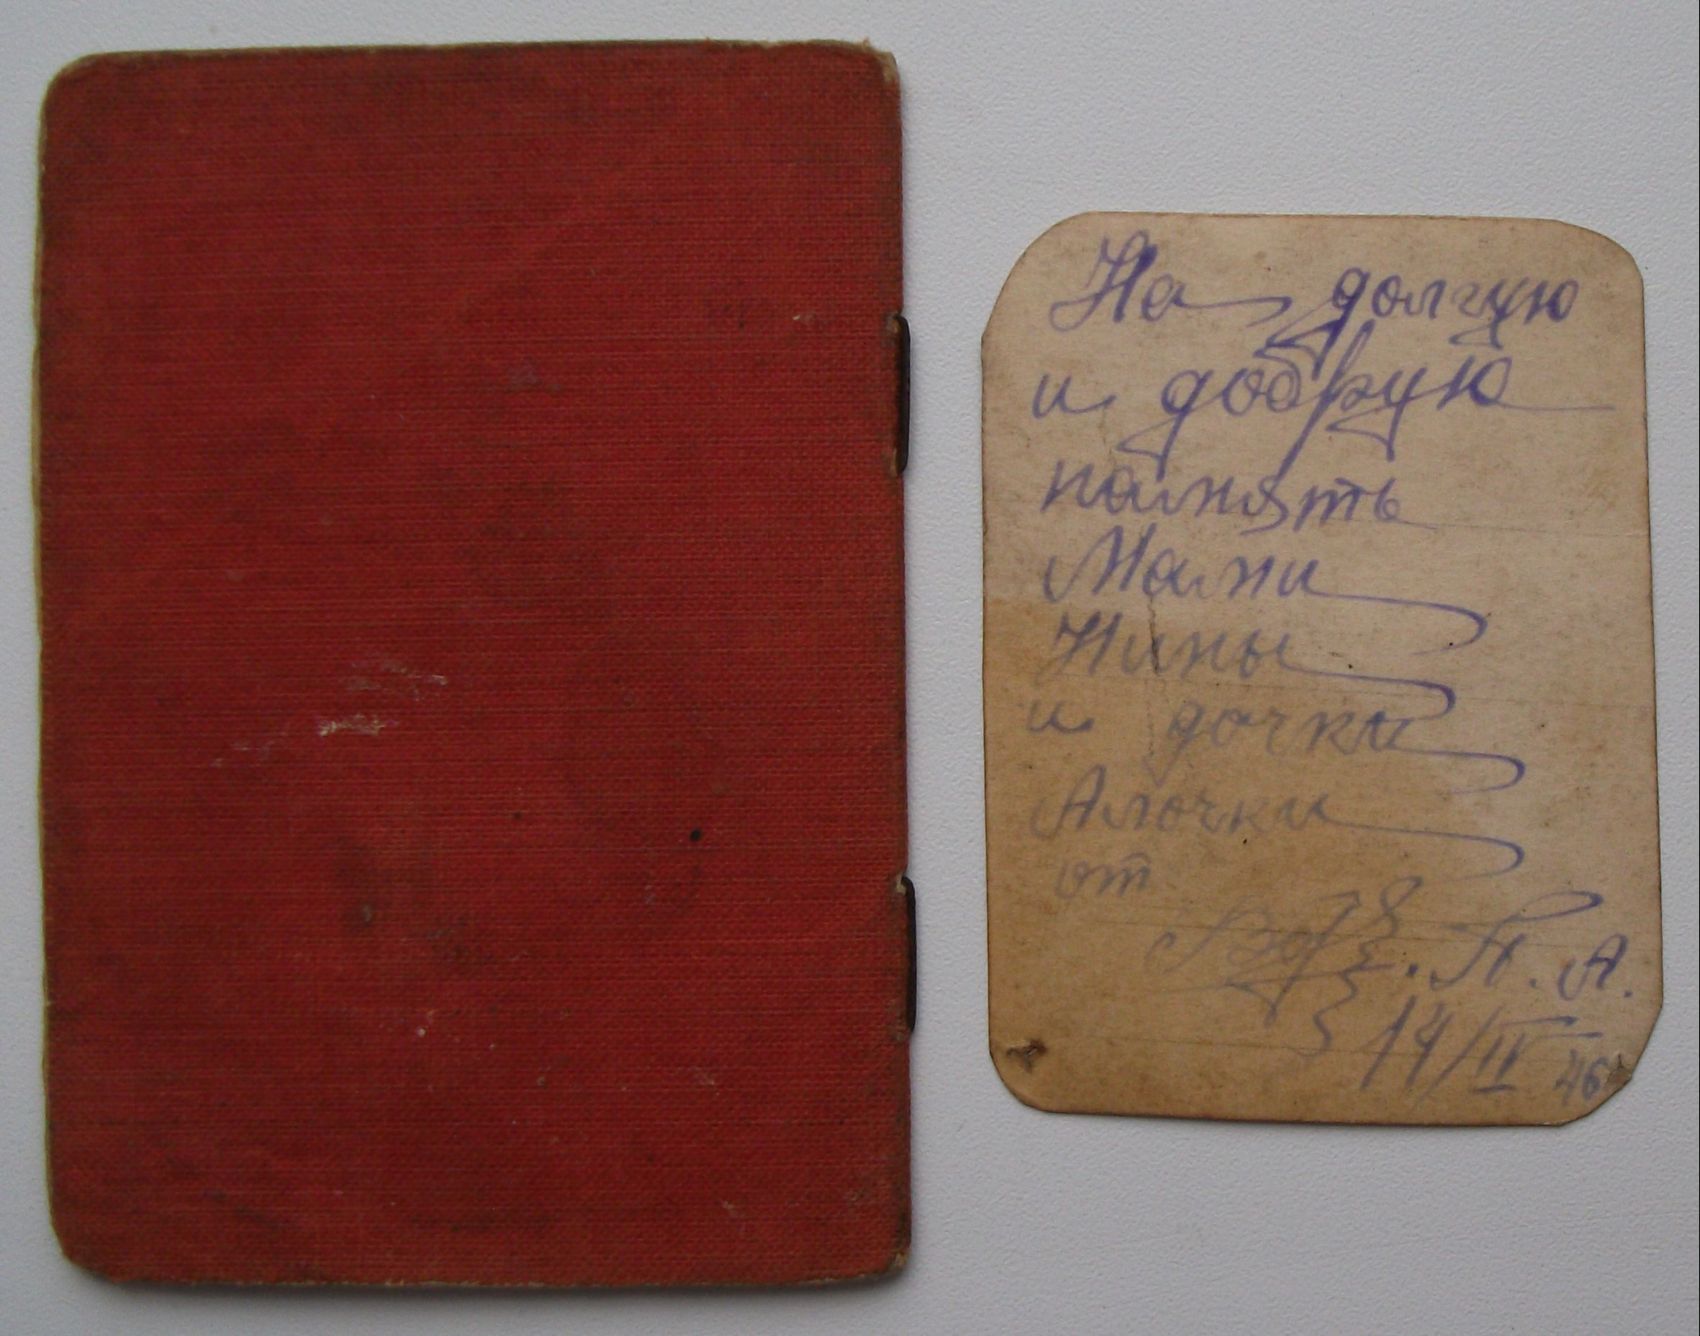 На долгую
и добрую
память
Мами
Нины
и дочки
Алочки
от
П. А.
14/II 46